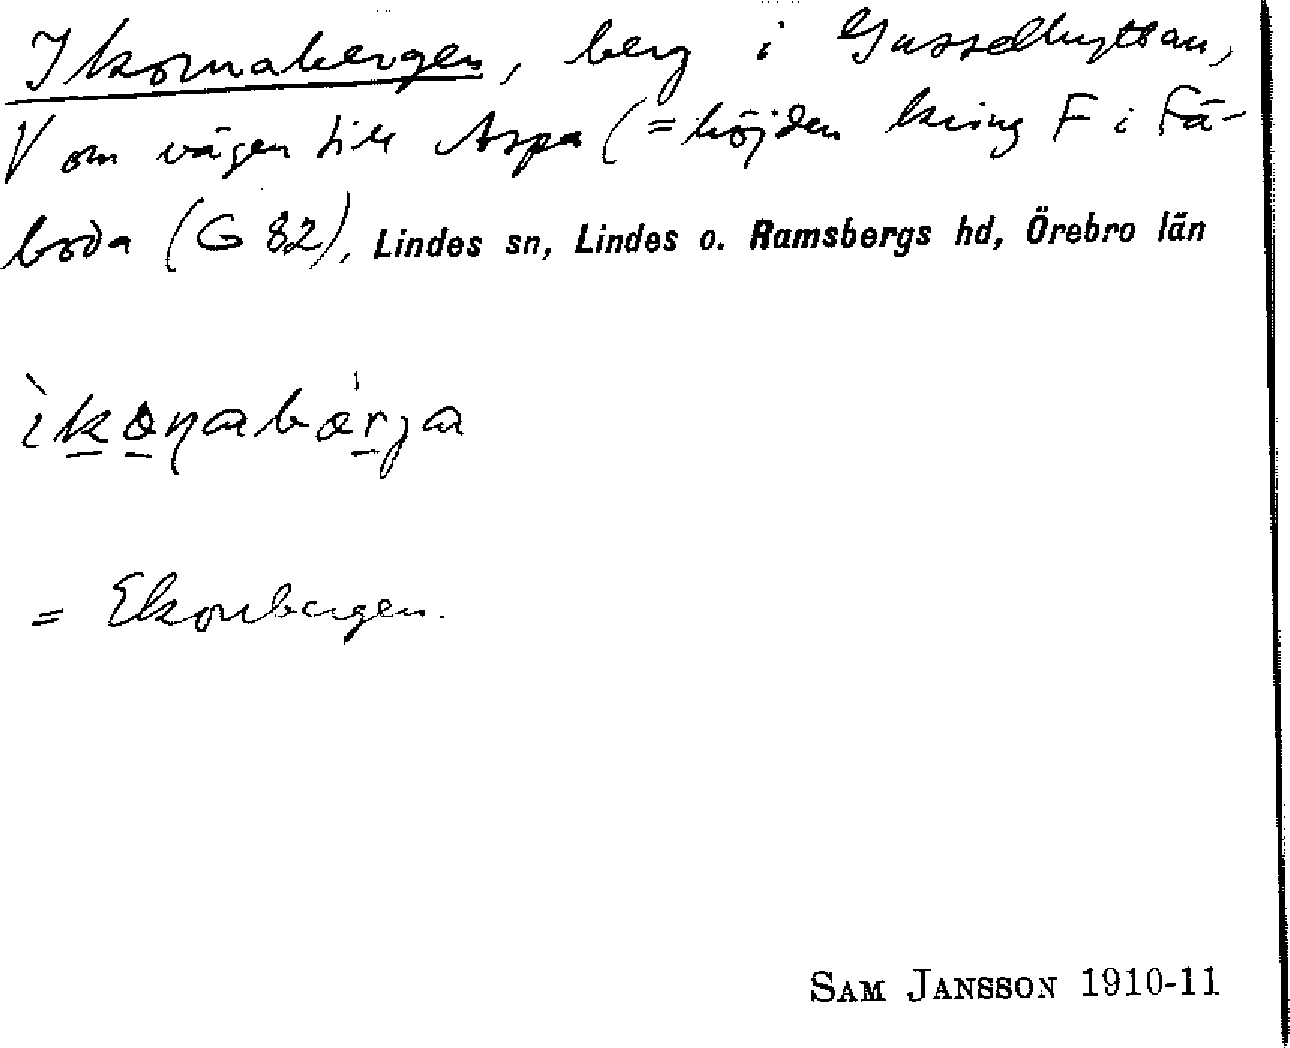 Ikornabergen, berg i Gusselhyttan,
V om vägen till Aspa (= höjden kring F i Fä-
boda (G 82), Lindes sn, Lindes o. Ramsbergs hd, Örebro län
= Ekornbergen.
SAM JANSSON 1910-11